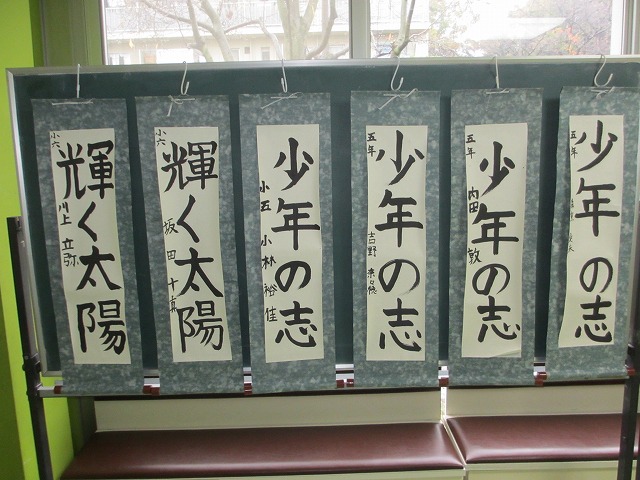 少年の志
五年
少年の志
五年 内田 敦
少年の志
五年 吉野
少年の志
小五 小林 裕佳
輝く太陽
小六 坂田 十真
輝く太陽
小六 川上 立弥